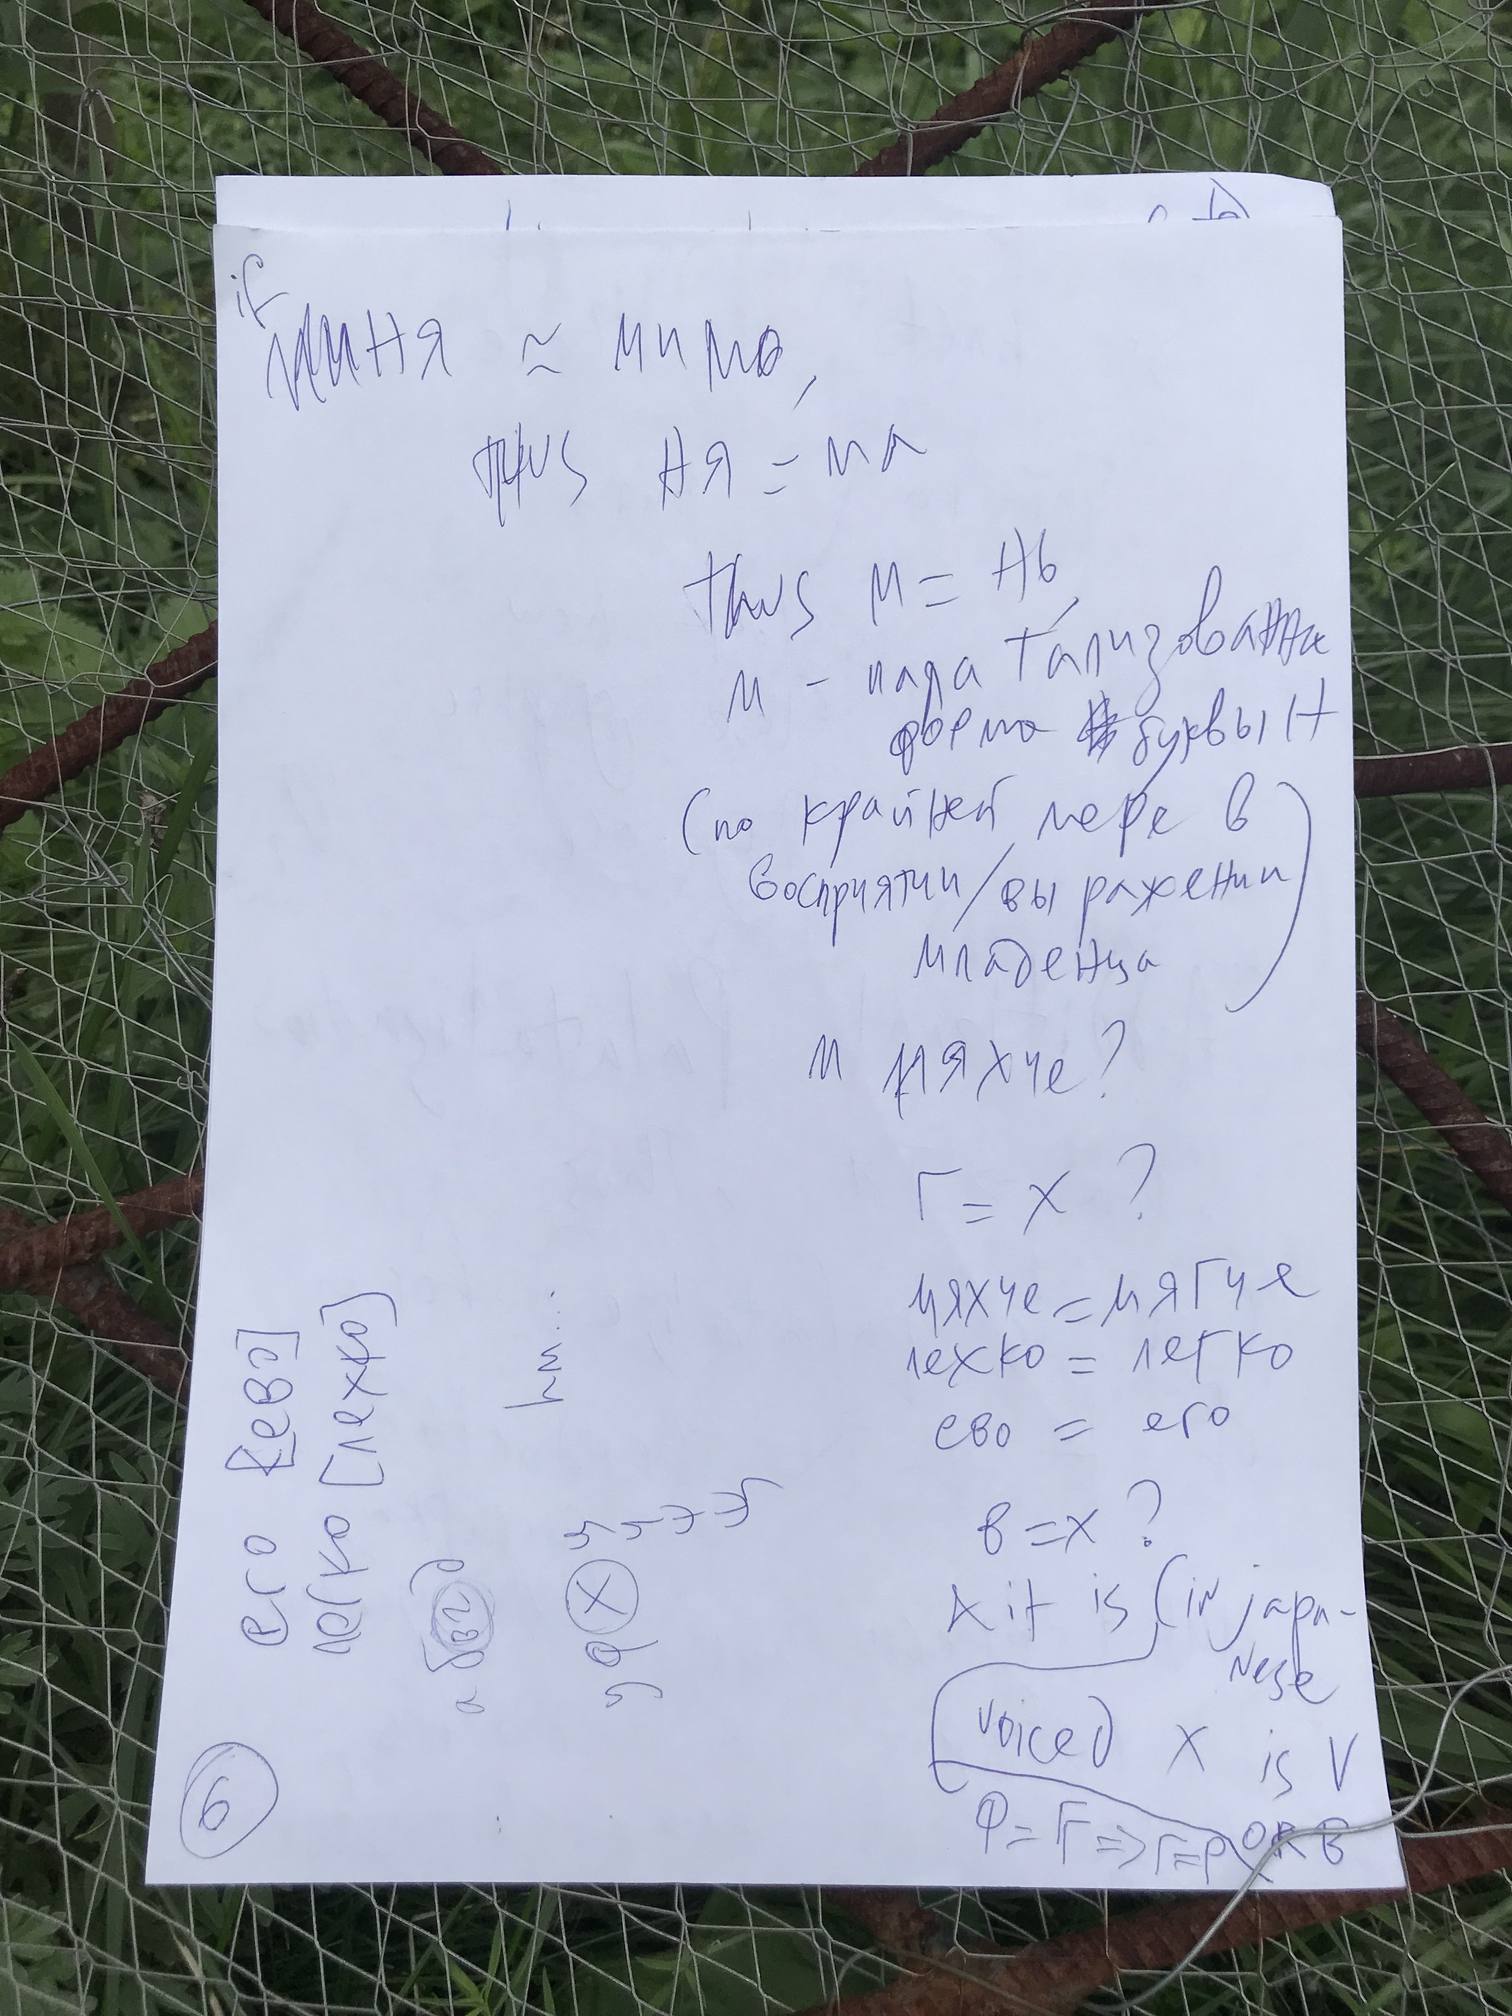 if
миня ≈ мима,
thus ня = ма
thus м = нь,
м - палатализованная
форма буквы Н
(по крайней мере в
восприятии/выражении
младенца)
м мяхче?
Г = Х ?
мяхче = мягче
лехко = легко
ево = его
в = х ?
it is (in japa-
nese
voiced X is V
OR B
его [ево]
легко [лехко]
hm...
6